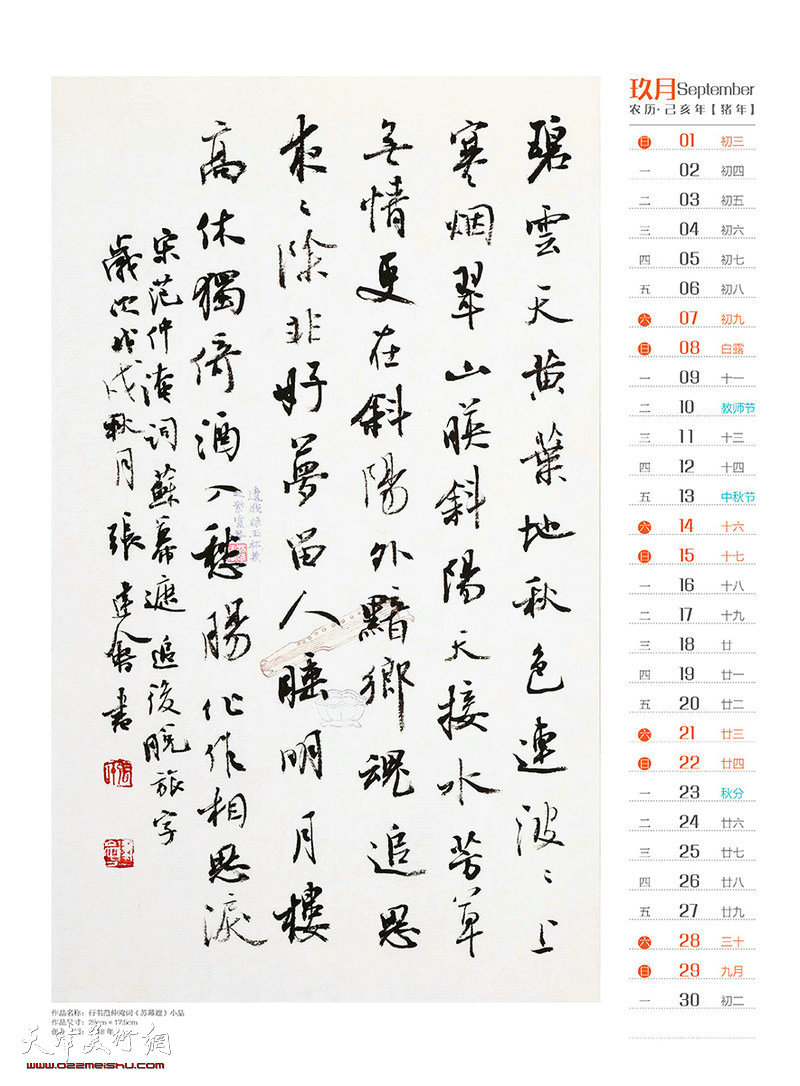 碧雲天黄葉地秋色連波〻上
寒烟翠山暎斜陽天接水芳草
無情更在斜陽外黯鄉魂追思
夜〻除非好夢留人睡明月樓
高休獨倚酒入愁腸化作相思淚
宋范仲淹詞蘇幕遮追後脱旅字
歲次戊戌秋月張建會書
玖月September
农历·己亥年【猪年】
日 01 初三
一 02 初四
二 03 初五
三 04 初六
四 05 初七
五 06 初八
六 07 初九
日 08 白露
一 09 十一
二 10 教师节
三 11 十三
四 12 十四
五 13 中秋节
六 14 十六
日 15 十七
一 16 十八
二 17 十九
三 18 廿
四 19 廿一
五 20 廿二
六 21 廿三
日 22 廿四
一 23 秋分
二 24 廿六
三 25 廿七
四 26 廿八
五 27 廿九
六 28 三十
日 29 九月
一 30 初二
作品名称：行书范仲淹词《苏幕遮》小品
作品尺寸：
天津美术網
www.022meishu.com